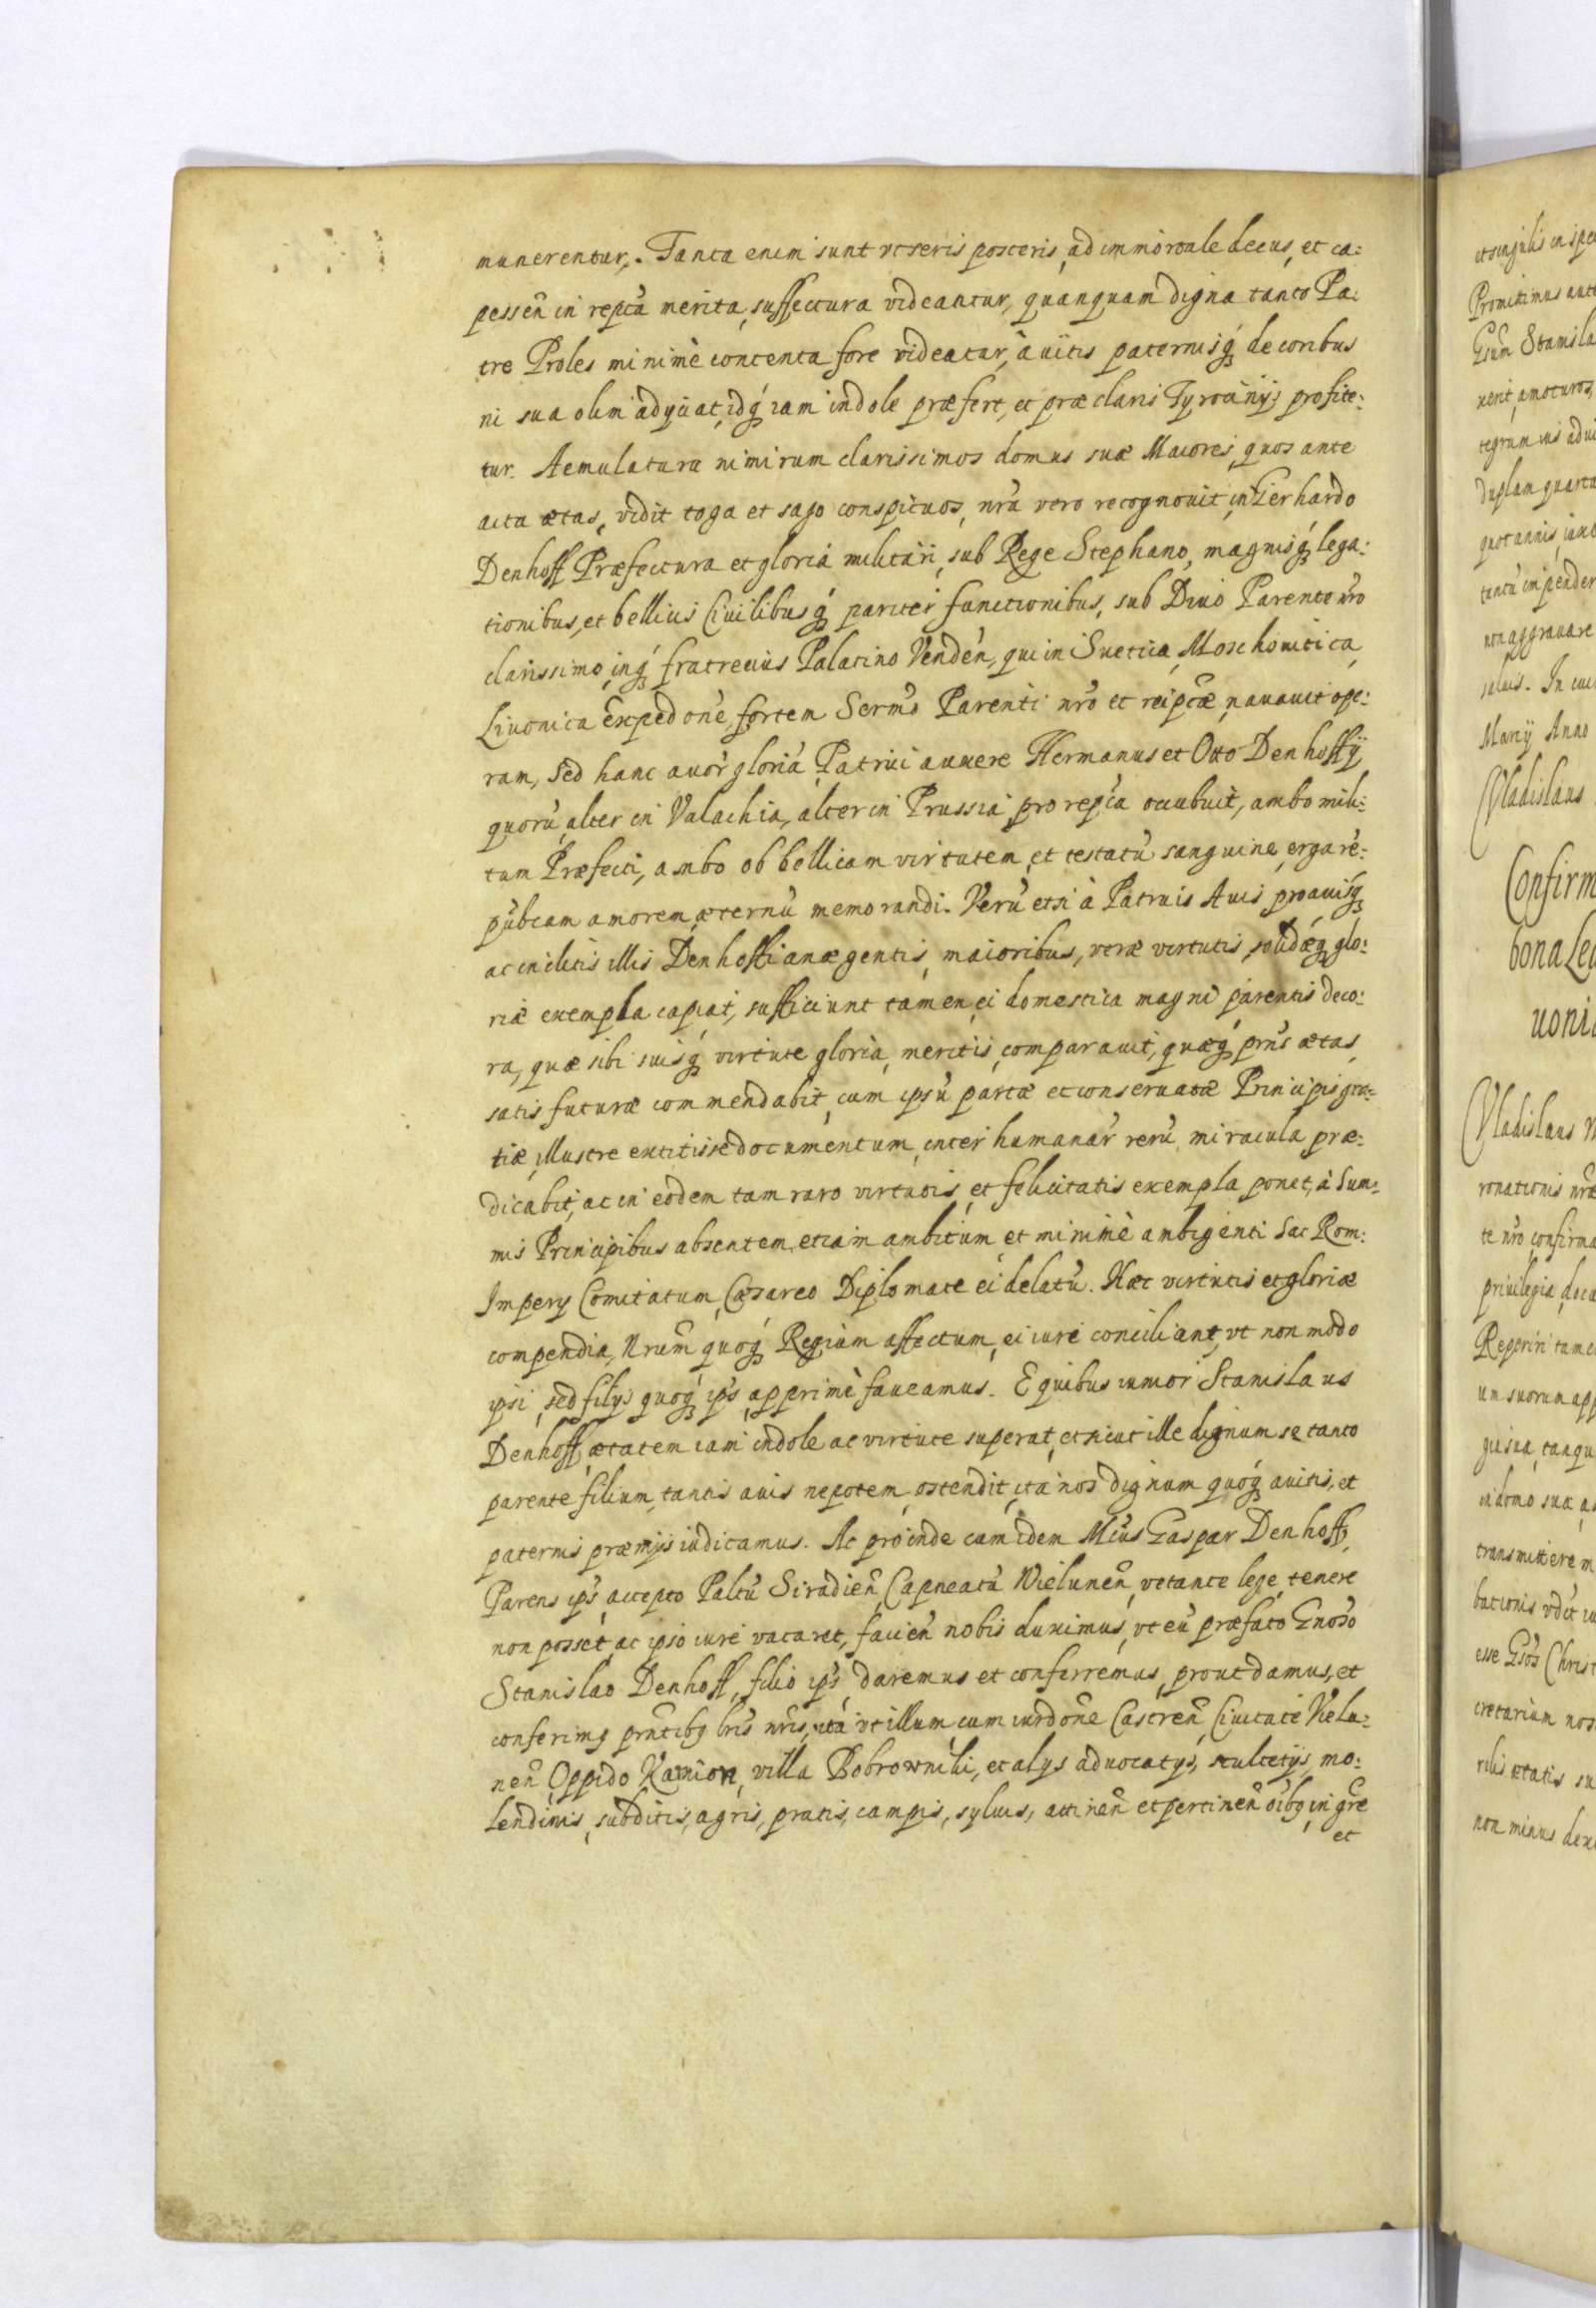 munerentur. Tanta enim sunt vt seris posteris, ad immortale decus, et ca:
pessen̄ in repca merita, suffectura videantur, quanquam digna tanto Pa:
tre Proles minimè contenta fore videatur, auitis paternisq́ decoribus
ni sua olim adijciat, idq́ iam indole præfert, et præclaris Tyrocinijs profite:
tur. Aemulatura nimirum clarissimos domus suæ Maiores, quos ante
acta ætas, vidit toga et sago conspicuos, nra vero recognouit, in Gerhardo
Denhoff Præfectura et gloria militari, sub Rege Stephano, magnisq́ lega:
tionibus, et bellicis Ciuilibusq́ pariter functionibus, sub Diuo Parente nro
clarissimo, inq́ fratre eius Palatino Venden̄, qui in Suetica, Moschouitica,
Liuonica expedone, fortem Sermo Parenti nro et reipcæ, nauauit ope:
ram, sed hanc auor gloriā Patrui auxere Hermanus et Otto Denhoffij,
quorū alter in Valachia, alter in Prussia, pro repca occubuit, ambo mili:
tum Præfecti, ambo ob bellicam virtutem, et testatū sanguine, erga re:
pubcam amorem, æternū memorandi. Verū etsi à Patruis Auis, proauisq́
ac inclitis illis Denhoffianæ gentis, maioribus, veræ virtutis, solidæq́ glo:
riæ exempla capiat, sufficiunt tamen, ei domestica magni parentis deco:
ra, quæ sibi suisq́ virtute gloria, meritis, comparauit, quæq́ prns ætas,
satis futuræ commendabit, cum ipsū partæ et conseruatæ Principis gra:
tiæ, illustre extitisse documentum, inter humanar rerū miracula præ:
dicabit, ac in eodem tam raro virtutis, et felicitatis exempla ponet, à Sum:
mis Principibus absentem, etiam ambitum, et minimè ambigenti Sac Rom:
Imperij Comitatum, Cæsareo Diplomate ei delatū. Hæc virtutis et gloriæ
compendia, Nrum quoq́ Regium affectum, ei iure conciliant, vt non modo
ipsi, sed filijs quoq́ ips, apprimè faueamus. E quibus iunior Stanislaus
Denhoff, ætatem iam indole ac virtute superat, et sicut ille dignum se tanto
parente filium, tantis auis nepotem, ostendit, ita nos dignum quoq́ auitis, et
paternis præmijs iudicamus. Ac proinde cum idem Mcus Gaspar Denhoff,
Parens ips, accepto Paltū Siradien̄, Capneatū Wielunen̄, vetante lege, tenere
non posset, ac ipso iure vacaret, facien̄ nobis duximus, vt eū præfato Gnoso
Stanislao Denhoff, filio ips, daremus et conferremus, prout damus, et
conferimq prntibq lris nris, ita vt illum cum iurdone Castren̄ Ciuitate Vielu:
nen̄ Oppido Kamion, villa Bobrowniki, et alijs aduocatijs, scultetijs, mo:
lendinis, subditis, agris, pratis, campis, syluis, attinen̄ et pertinen̄ oibq in gre
et